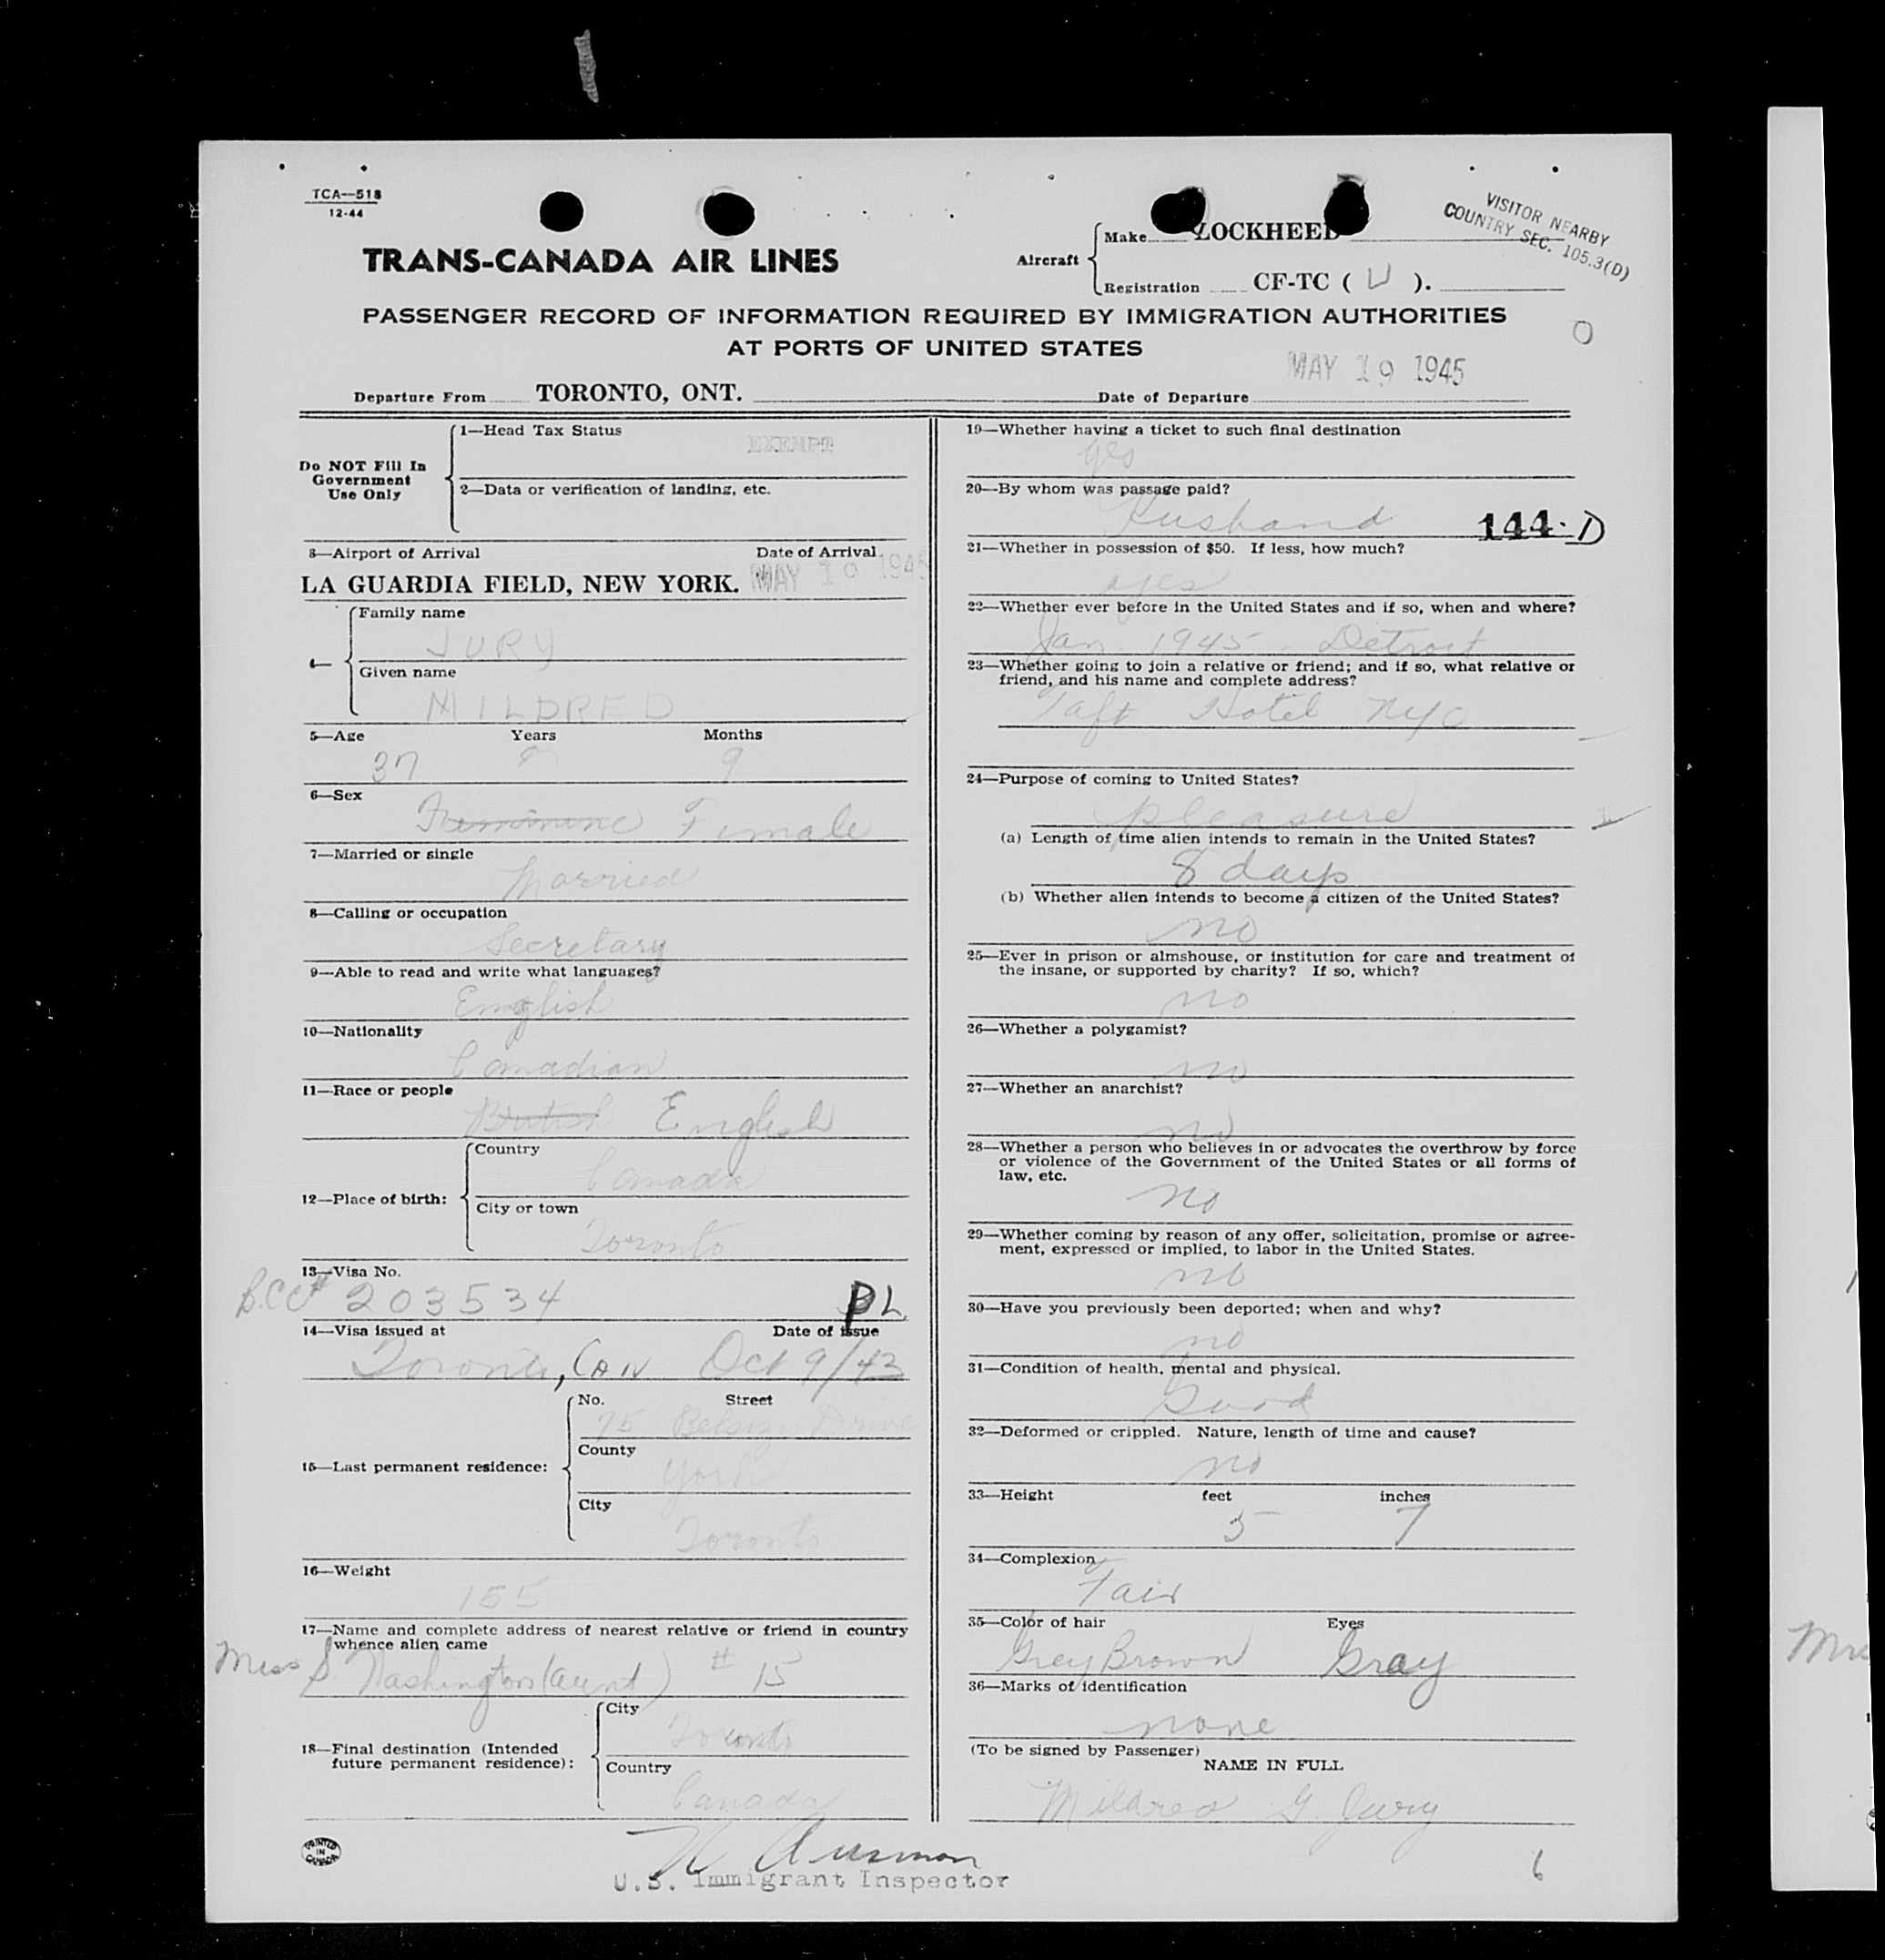 TCA—518
12-44
VISITOR NEARBY
COUNTRY SEC. 105.3(D)
TRANS-CANADA AIR LINES
Aircraft
Make LOCKHEED
Registration CF-TC ( W ).
PASSENGER RECORD OF INFORMATION REQUIRED BY IMMIGRATION AUTHORITIES
AT PORTS OF UNITED STATES
MAY 19 1945
Departure From TORONTO, ONT. Date of Departure
Do NOT Fill In
Government
Use Only
1—Head Tax Status
EXEMPT
2—Data or verification of landing, etc.
3—Airport of Arrival Date of Arrival
LA GUARDIA FIELD, NEW YORK. MAY 19 1945
4—
Family name
JURY
Given name
MILDRED
5—Age Years Months
37 9
6—Sex
Feminine Female
7—Married or single
Married
8—Calling or occupation
Secretary
9—Able to read and write what languages?
English
10—Nationality
Canadian
11—Race or people
British English
12—Place of birth:
Country
Canada
City or town
Toronto
13—Visa No.
B.C.C# 203534 PL
14—Visa issued at Date of issue
Toronto, CAN Oct 9/43
15—Last permanent residence:
No. Street
75 Belsize Drive
County
York
City
Toronto
16—Weight
155
17—Name and complete address of nearest relative or friend in country
whence alien came
Miss S Washington (aunt) # 15
18—Final destination (Intended
future permanent residence):
City
Toronto
Country
Canada
19—Whether having a ticket to such final destination
yes
20—By whom was passage paid?
Husband 144-D
21—Whether in possession of $50. If less, how much?
yes
22—Whether ever before in the United States and if so, when and where?
Jan. 1945 Detroit
23—Whether going to join a relative or friend; and if so, what relative or
friend, and his name and complete address?
Taft Hotel NYC
24—Purpose of coming to United States?
pleasure
(a) Length of time alien intends to remain in the United States?
8 days
(b) Whether alien intends to become a citizen of the United States?
no
25—Ever in prison or almshouse, or institution for care and treatment of
the insane, or supported by charity? If so, which?
no
26—Whether a polygamist?
no
27—Whether an anarchist?
no
28—Whether a person who believes in or advocates the overthrow by force
or violence of the Government of the United States or all forms of
law, etc.
no
29—Whether coming by reason of any offer, solicitation, promise or agree-
ment, expressed or implied, to labor in the United States.
no
30—Have you previously been deported; when and why?
no
31—Condition of health, mental and physical.
Good
32—Deformed or crippled. Nature, length of time and cause?
no
33—Height feet inches
5 7
34—Complexion
Fair
35—Color of hair Eyes
Grey Brown Gray
36—Marks of identification
none
(To be signed by Passenger)
NAME IN FULL
Mildred G. Jury
PRINTED
IN
CANADA
U.S. Immigrant Inspector
6